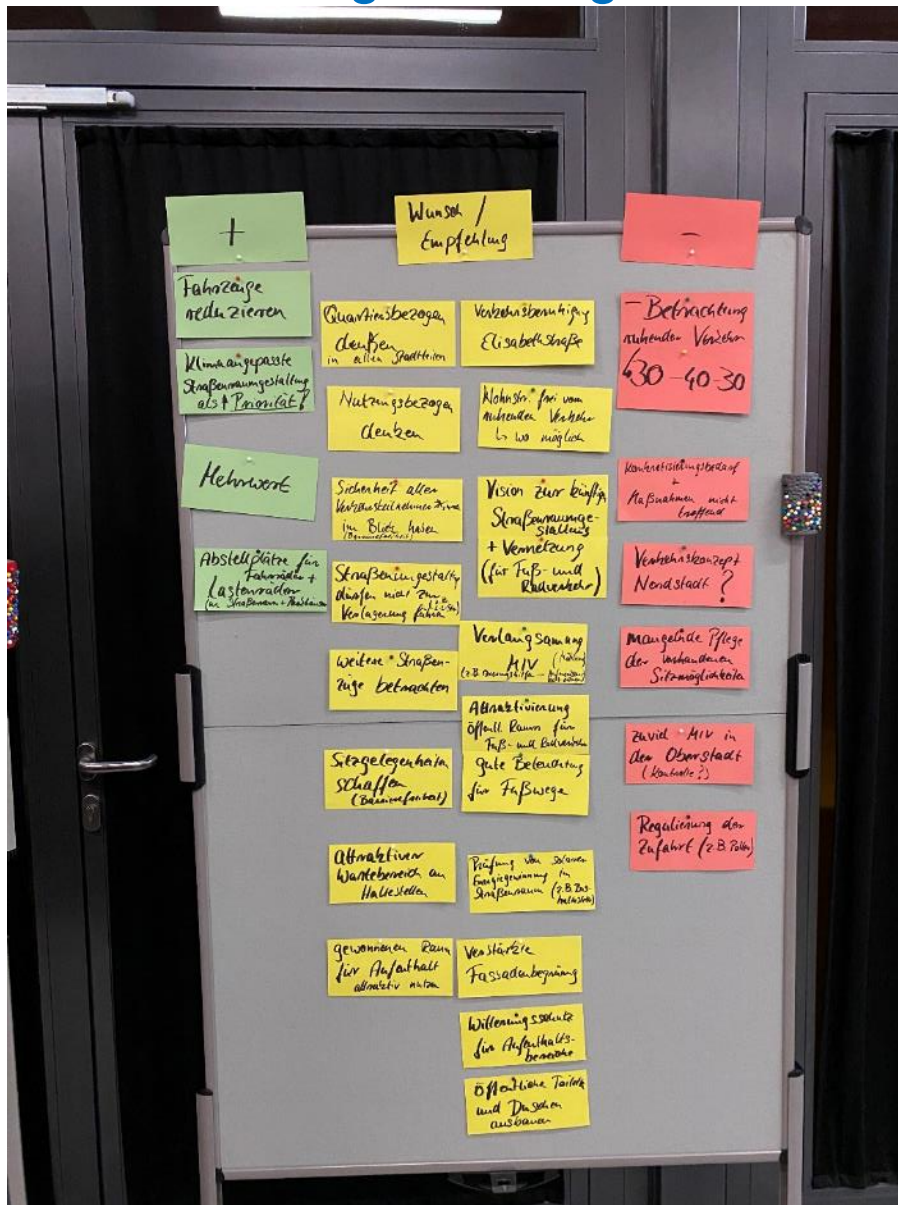 +
Fahrzeuge
reduzieren
Klimaangepasste
Straßenraumgestaltung
als 1 Priorität!
Mehrwert
Abstellplätze für
Fahrräder +
Lastenräder
Wunsch /
Empfehlung
Quartiersbezogen
denken
in allen Stadtteilen
Nutzungsbezogen
denken
Sicherheit aller
Verkehrsteilnehmer
im Blick haben
(Barrierefreiheit)
Straßenumgestaltg
dürfen nicht zur
Verlagerung führen
weitere Straßen-
züge betrachten
Sitzgelegenheiten
schaffen
(Barrierefreiheit)
Attraktiver
Wartebereich an
Haltestellen
gewonnenen Raum
für Aufenthalt
attraktiv nutzen
Verkehrsberuhigung
Elisabethstraße
Wohnstr. frei vom
ruhenden Verkehr
↳ wo möglich
Vision zur künftig
Straßenraumge-
staltung
+ Vernetzung
(für Fuß- und
Radverkehr)
Verlangsamung
MIV
Attraktivierung
öffentl. Raum für
Fuß- und Radverkehr
gute Beleuchtung
für Fußwege
Prüfung von solarer
Energiegewinnung im
Straßenraum (z.B.
Verstärkte
Fassadenbegrünung
Witterungsschutz
für Aufenthalts-
bereiche
öffentliche Toiletten
und Duschen
ausbauen
-
- Betrachtung
ruhender Verkehr
↳ 30-40-30
Konkretisierungsbedarf
+
Maßnahmen nicht
treffend
Verkehrskonzept
Nordstadt?
mangelnde Pflege
der vorhandenen
Sitzmöglichkeiten
zuviel MIV in
der Oberstadt
(Kontrolle?)
Regulierung der
Zufahrt (z.B. Poller)